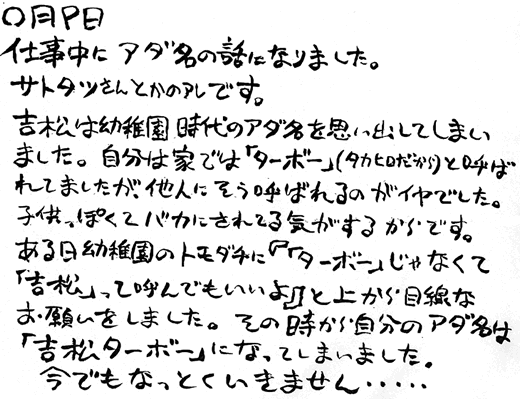 〇月P日
仕事中にアダ名の話になりました。
サトタツさんとかのアレです。
吉松は幼稚園時代のアダ名を思い出してしまい
ました。自分は家では「ターボー」(タカヒロだから)と呼ば
れてましたが、他人にそう呼ばれるのがイヤでした。
子供っぽくてバカにされてる気がするからです。
ある日幼稚園のトモダチに『「ターボー」じゃなくて
「吉松」って呼んでもいいよ』と上から目線な
お願いをしました。その時から自分のアダ名は
「吉松ターボー」になってしまいました。
今でもなっとくいきません・・・・・